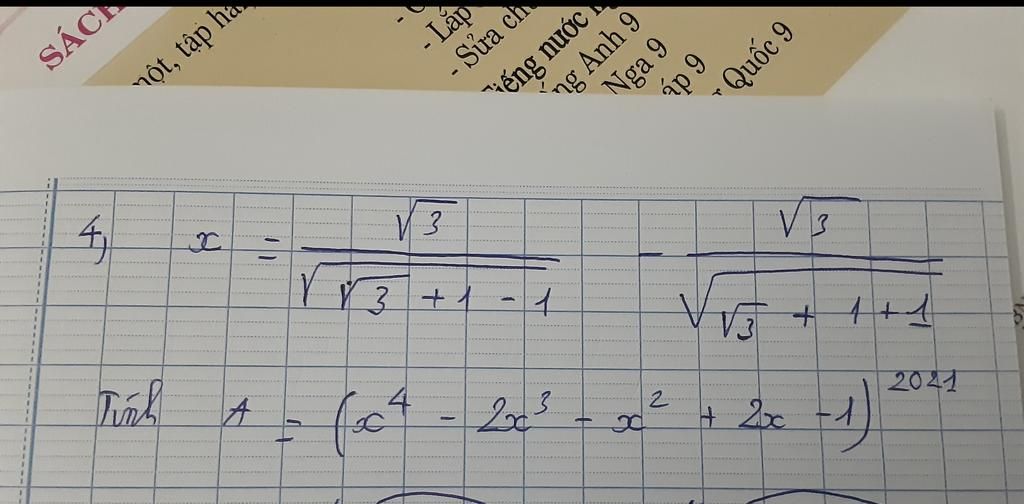 SÁCH
một, tập hà
- Lắp
- Sửa ch
Tiếng nước
ng Anh 9
Nga 9
áp 9
Quốc 9
4, x = √3 / √(√3 + 1 - 1) - √3 / √(√3 + 1 + 1)
Tính A = (x^4 - 2x^3 - x^2 + 2x - 1)^2021